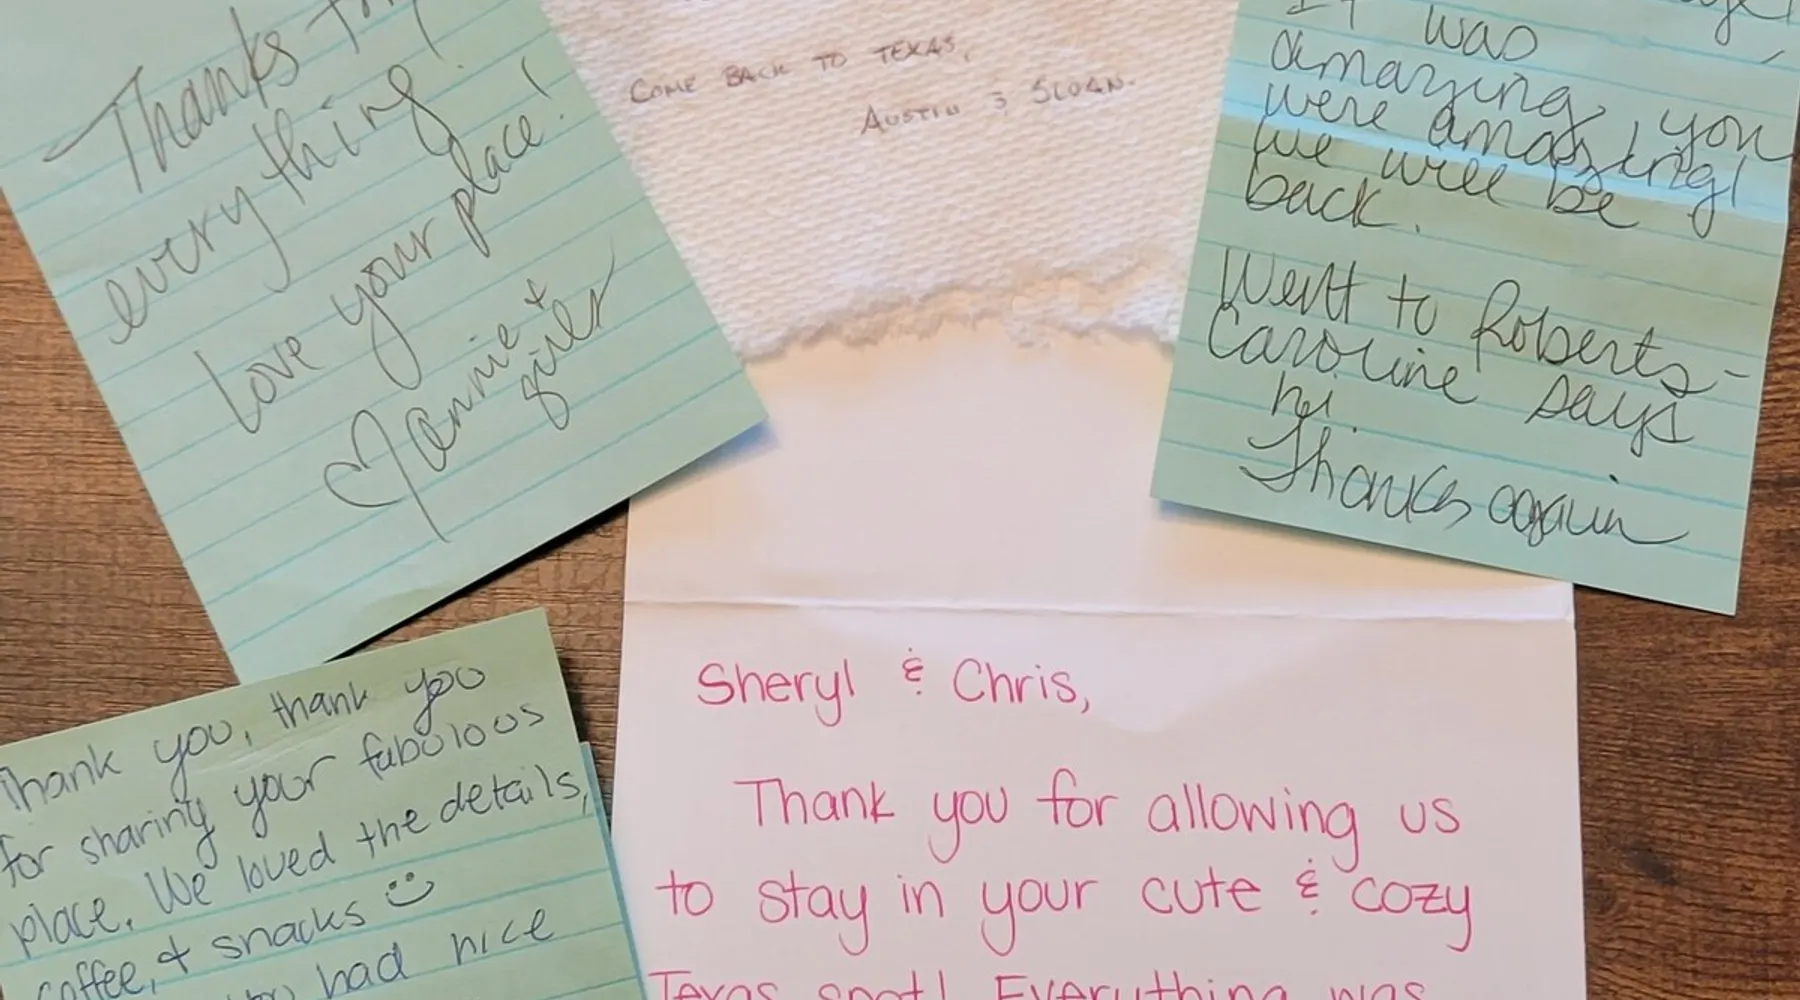 Thanks for
everything!
Love your place!
♡ Jannie +
girls
COME BACK TO TEXAS,
AUSTIN & SLOAN.
It was
amazing, you
were amazing!
we will be
back.
Went to Roberts-
Caroline says
hi.
Thanks again
Thank you, thank you
for sharing your fabulous
place. We loved the details,
coffee, & snacks :)
had nice
Sheryl & Chris,
Thank you for allowing us
to stay in your cute & cozy
Texas spot! Everything was